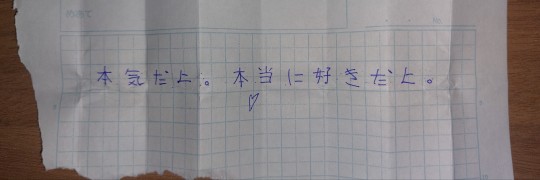 本気だよ。本当に好きだよ。
♡